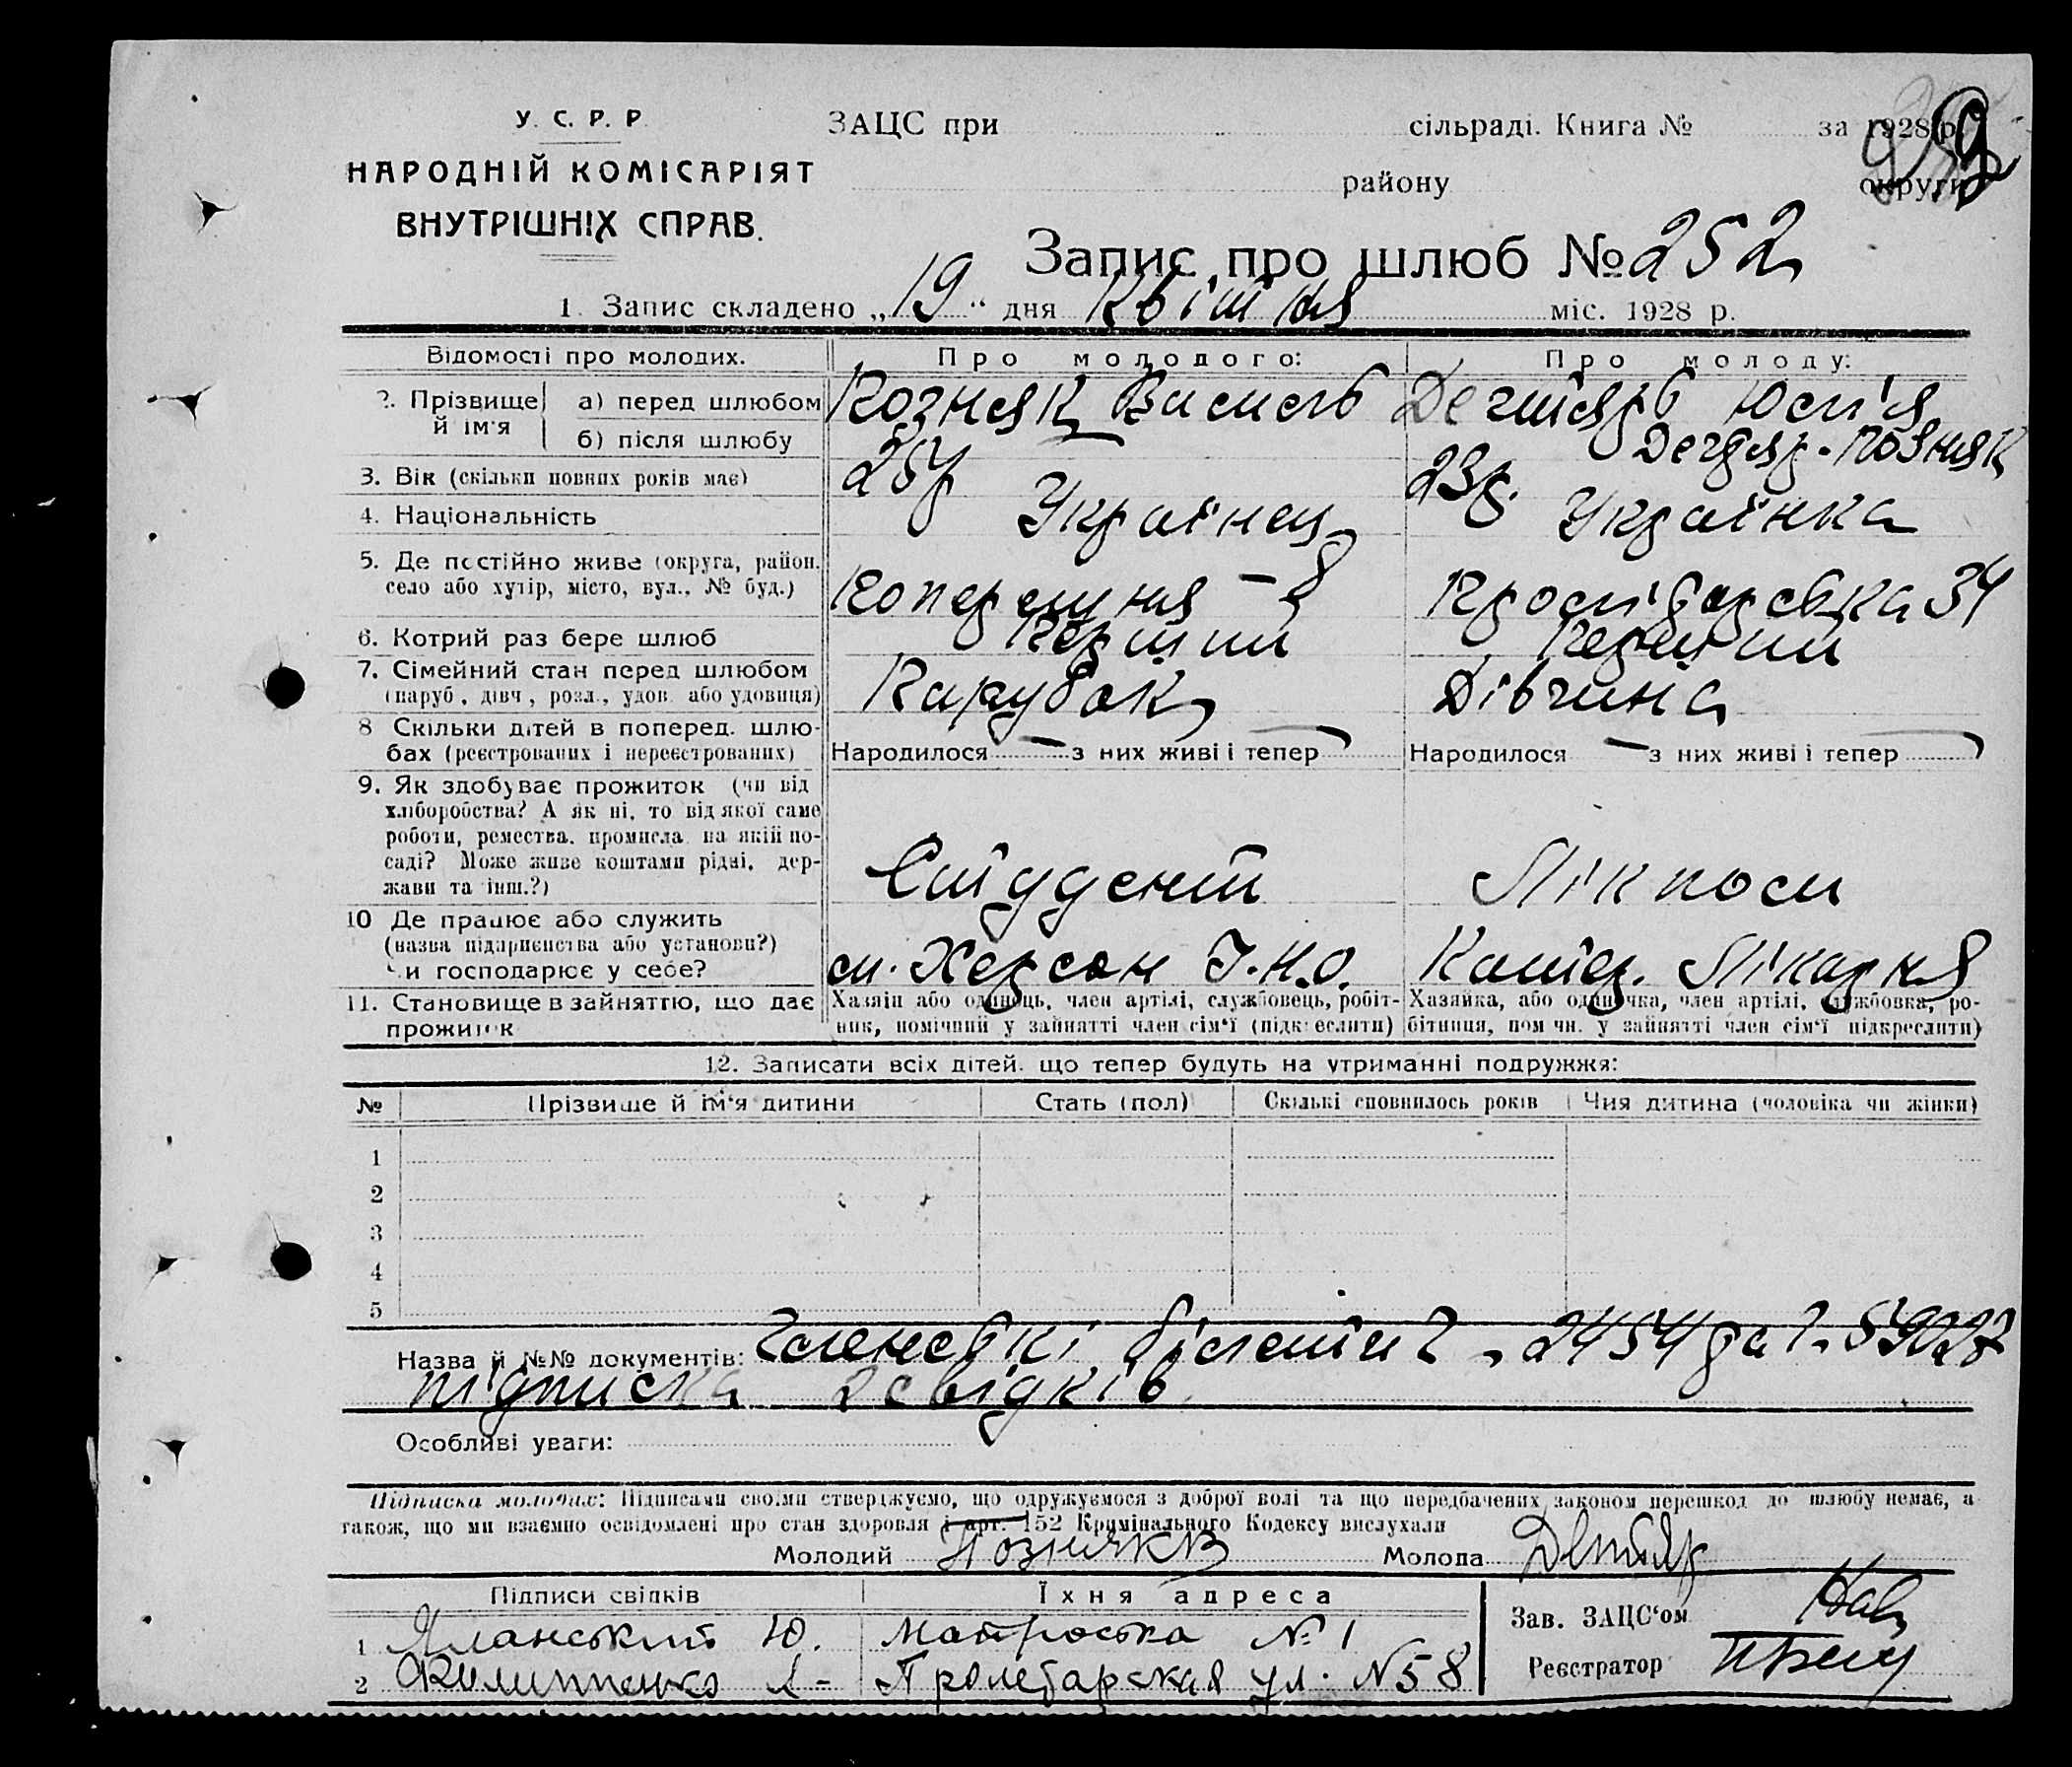 У. С. Р. Р.
НАРОДНІЙ КОМІСАРІЯТ
ВНУТРІШНІХ СПРАВ.
ЗАЦС при сільраді. Книга № за 1928 р.
району округи
Запис про шлюб № 252
1. Запис складено „19“ дня Квітня міс. 1928 р.
Відомості про молодих. Про молодого: Про молоду:
2. Прізвище й ім'я а) перед шлюбом Позняк Василь Дегтярь Юлія
б) після шлюбу Дегтяр-Позняк
3. Вік (скільки повних років має) 25р 23р.
4. Національність Українец Українка
5. Де постійно живе (округа, район, село або хутір, місто, вул., № буд.) 34
6. Котрий раз бере шлюб Перший Перший
7. Сімейний стан перед шлюбом Парубок Дівчина
(паруб., дівч., розл., удов. або удовиця)
8 Скільки дітей в поперед. шлюбах (реєстрованих і нереєстрованих) Народилося — з них живі і тепер — Народилося — з них живі і тепер —
9. Як здобуває прожиток (чи від
хліборобства? А як ні, то від якої саме
роботи, ремества, промисла на якій посаді? Може живе коштами рідні, держави та інш.?) Студент Лікпом
10 Де працює або служить
(назва підприємства або установи?)
Чи господарює у себе? м. Херсон І.Н.О. Лікарня
11. Становище в зайняттю, що дає прожиток Хазяїн або одинець, член артілі, службовець, робітник, помічний у зайнятті член сім'ї (підкреслити) Хазяйка, або одиначка, член артілі, службовка, робітниця, пом чн. у зайнятті член сім'ї підкреслити)
12. Записати всіх дітей, що тепер будуть на утриманні подружжя:
№ Прізвище й ім'я дитини Стать (пол) Скількі сповнилось років Чия дитина (чоловіка чи жінки)
1
2
3
4
5
Назва й №№ документів: Членські білети 2454 да 59027
підписка 2 свідків.
Особливі уваги:
Підписка молодих: Підписами своїми стверджуємо, що одружуємося з доброї волі та що передбачених законом перешкод до шлюбу немає, а
також, що ми взаємно освідомлені про стан здоровля і арт. 152 Кримінального Кодексу вислухали
Молодий Позняк В Молода Дегтяр
Підписи свідків Їхня адреса
1 Яланський Ю. Матроська № 1
2 Филиппенко Л- Пролетарская ул. N58
Зав. ЗАЦС'ом
Реєстратор